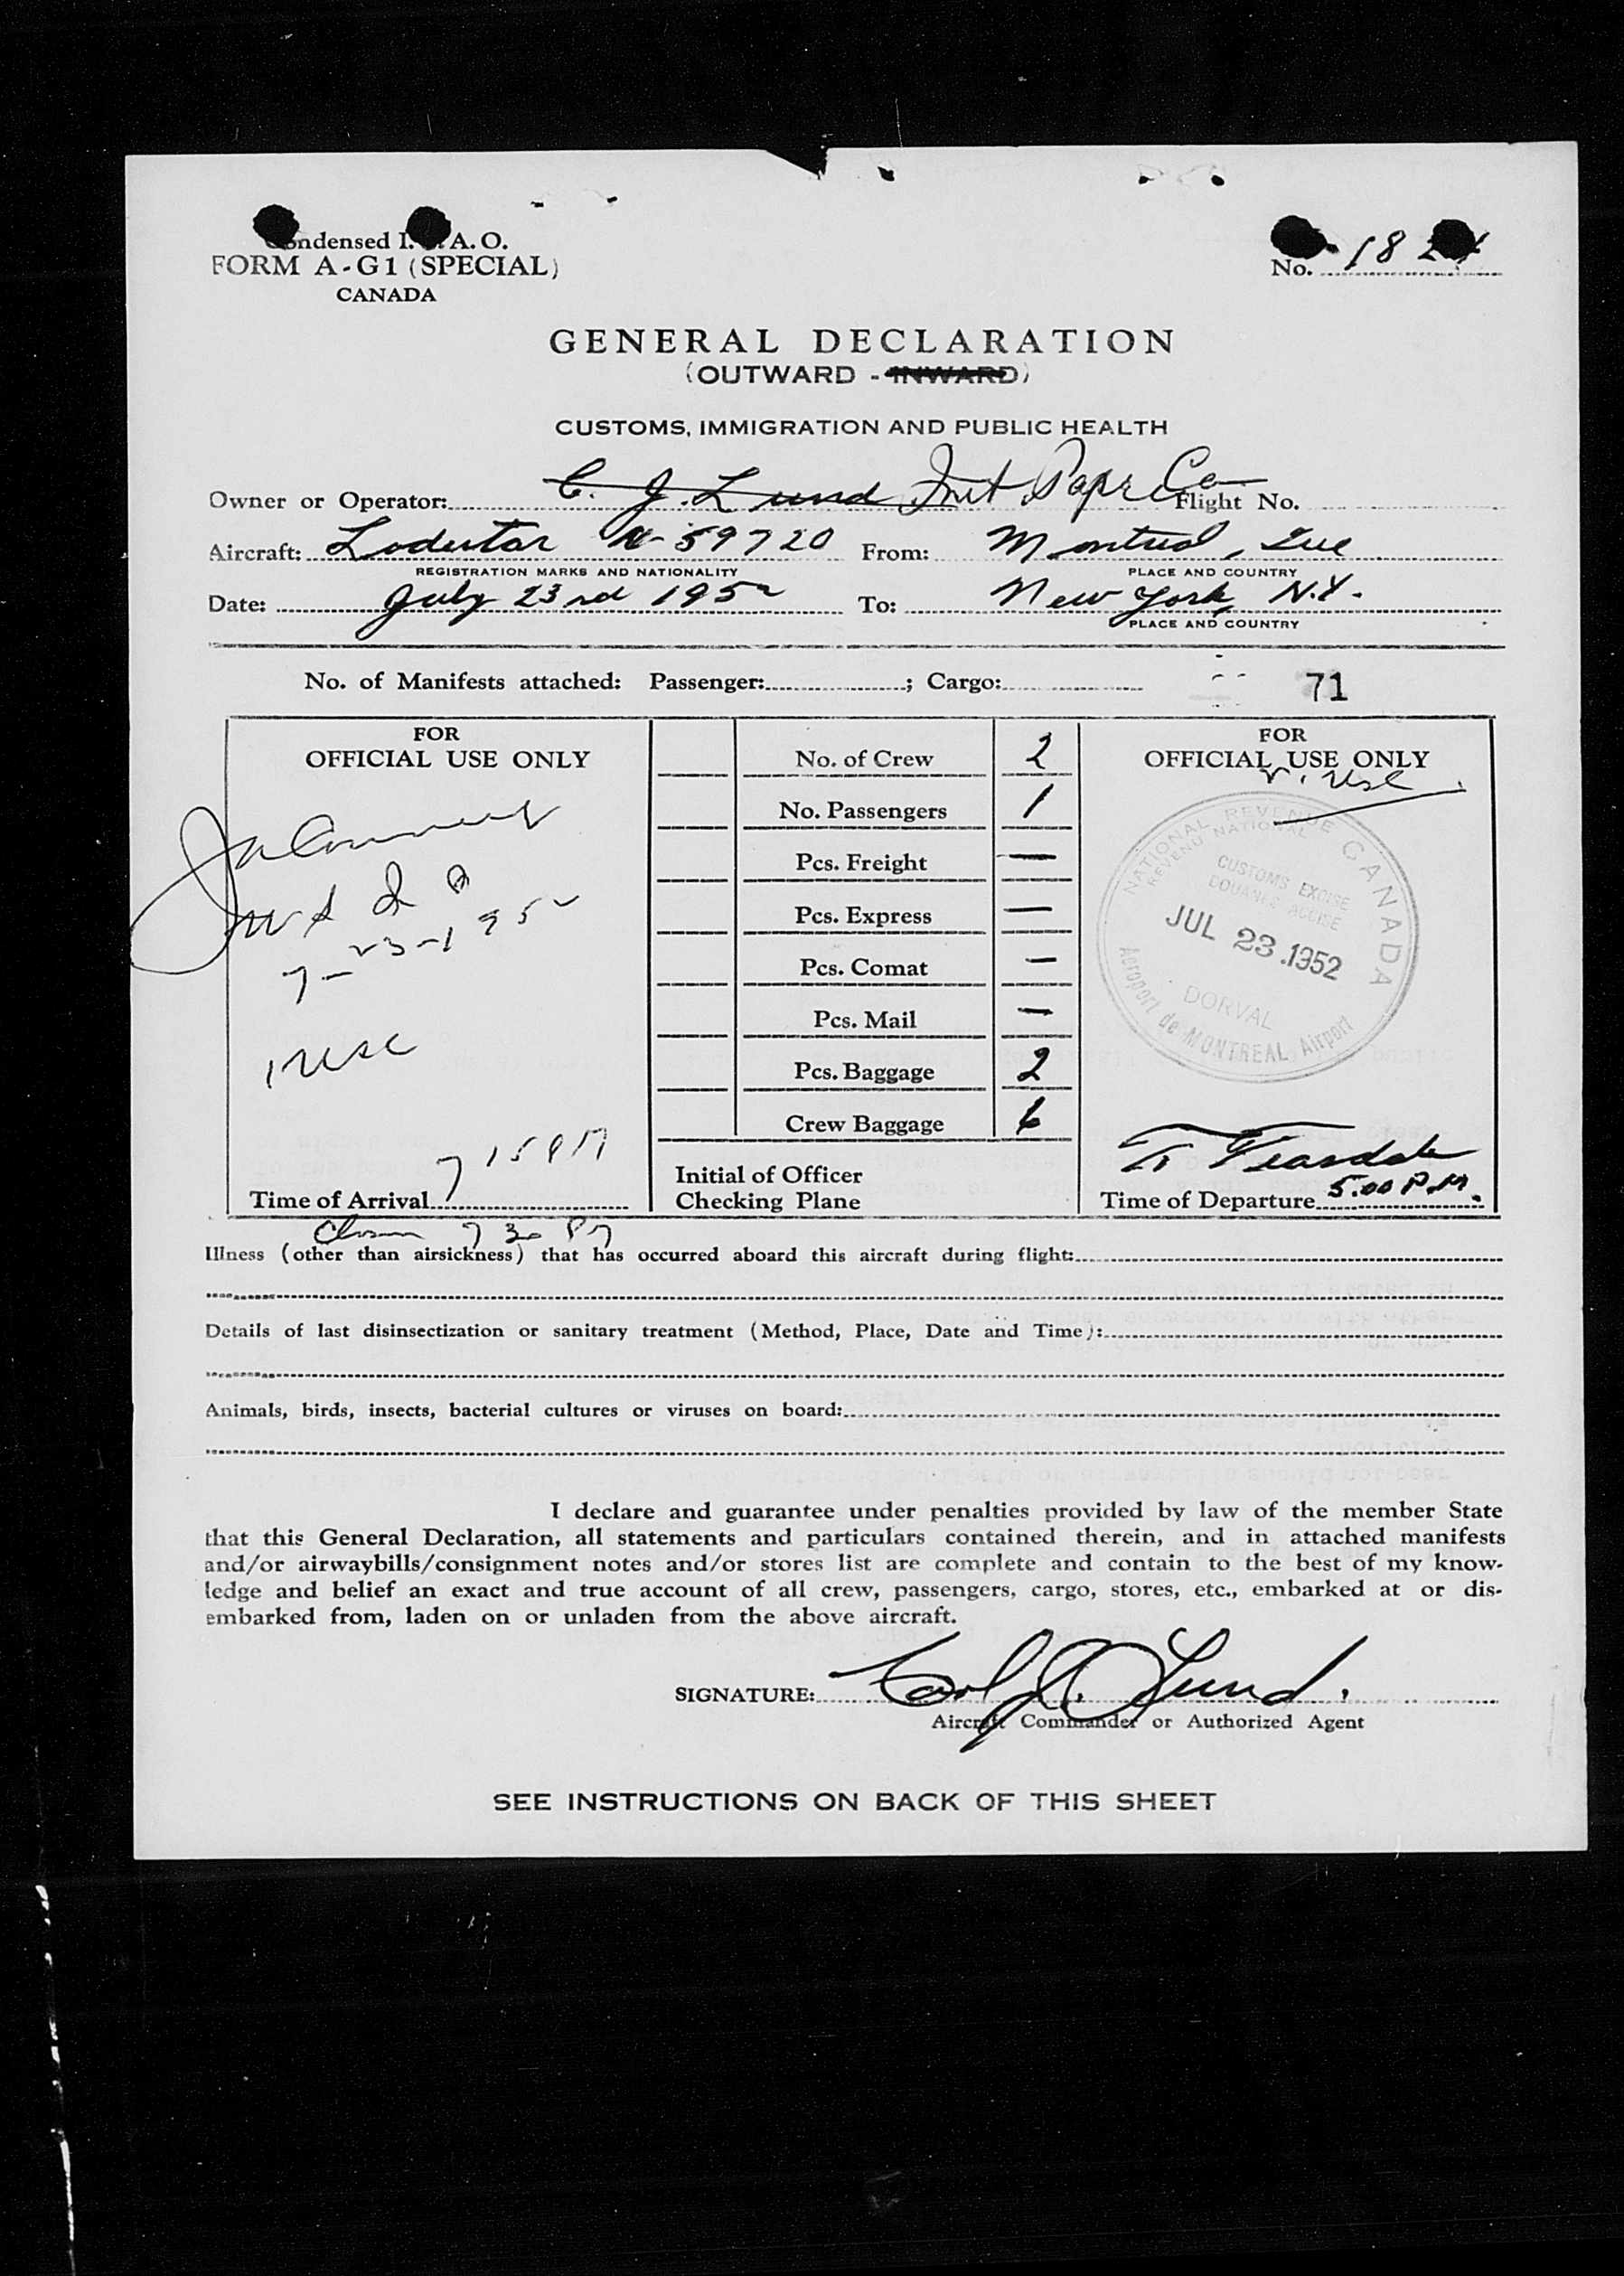 ondensed I. A. O.
FORM A-G1 (SPECIAL)
CANADA
No. 18 2
GENERAL DECLARATION
(OUTWARD - INWARD)
CUSTOMS, IMMIGRATION AND PUBLIC HEALTH
Owner or Operator: C. J. Lund Int Papr Co Flight No.
Aircraft: Lodestar N-59720 From: Montreal, Que
REGISTRATION MARKS AND NATIONALITY PLACE AND COUNTRY
Date: July 23rd 1952 To: New York, N.Y.
PLACE AND COUNTRY
No. of Manifests attached: Passenger: ; Cargo: 71
FOR
OFFICIAL USE ONLY
7-23-1952
1 usc
7 15 PM
Time of Arrival
No. of Crew 2
No. Passengers 1
Pcs. Freight —
Pcs. Express —
Pcs. Comat —
Pcs. Mail —
Pcs. Baggage 2
Crew Baggage 6
Initial of Officer
Checking Plane
FOR
OFFICIAL USE ONLY
NATIONAL REVENUE CANADA
REVENU NATIONAL
CUSTOMS EXCISE
DOUANES ACCISE
JUL 23 1952
DORVAL
Aéroport de MONTREAL Airport
T Teasdale
Time of Departure 5.00 P.M.
7 30 PM
Illness (other than airsickness) that has occurred aboard this aircraft during flight:
Details of last disinsectization or sanitary treatment (Method, Place, Date and Time):
Animals, birds, insects, bacterial cultures or viruses on board:
I declare and guarantee under penalties provided by law of the member State
that this General Declaration, all statements and particulars contained therein, and in attached manifests
and/or airwaybills/consignment notes and/or stores list are complete and contain to the best of my know-
ledge and belief an exact and true account of all crew, passengers, cargo, stores, etc., embarked at or dis-
embarked from, laden on or unladen from the above aircraft.
SIGNATURE: Carl J. Lund.
Aircraft Commander or Authorized Agent
SEE INSTRUCTIONS ON BACK OF THIS SHEET